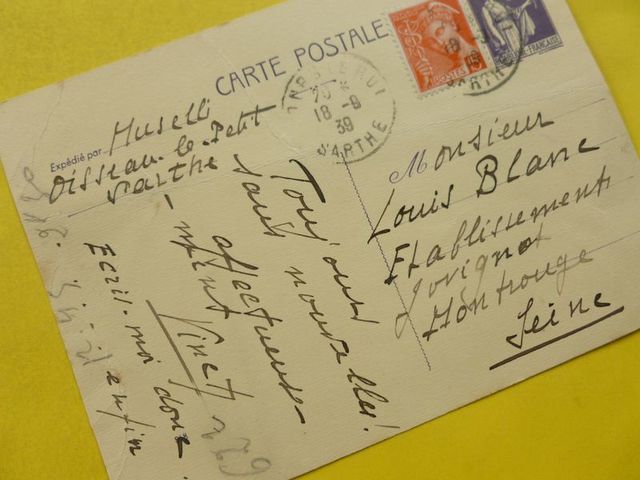 CARTE POSTALE
POSTES
FRANÇAISE
18 -9
39
SARTHE
SARTHE
Expédié par Muselli
Oisseau-le-Petit
Sarthe
Toujours
sans nouvelles!
affectueuse-
-ment
Ecris-moi donc
enfin
Monsieur
Louis Blanc
Etablissements
Jovignot
Montrouge
Seine